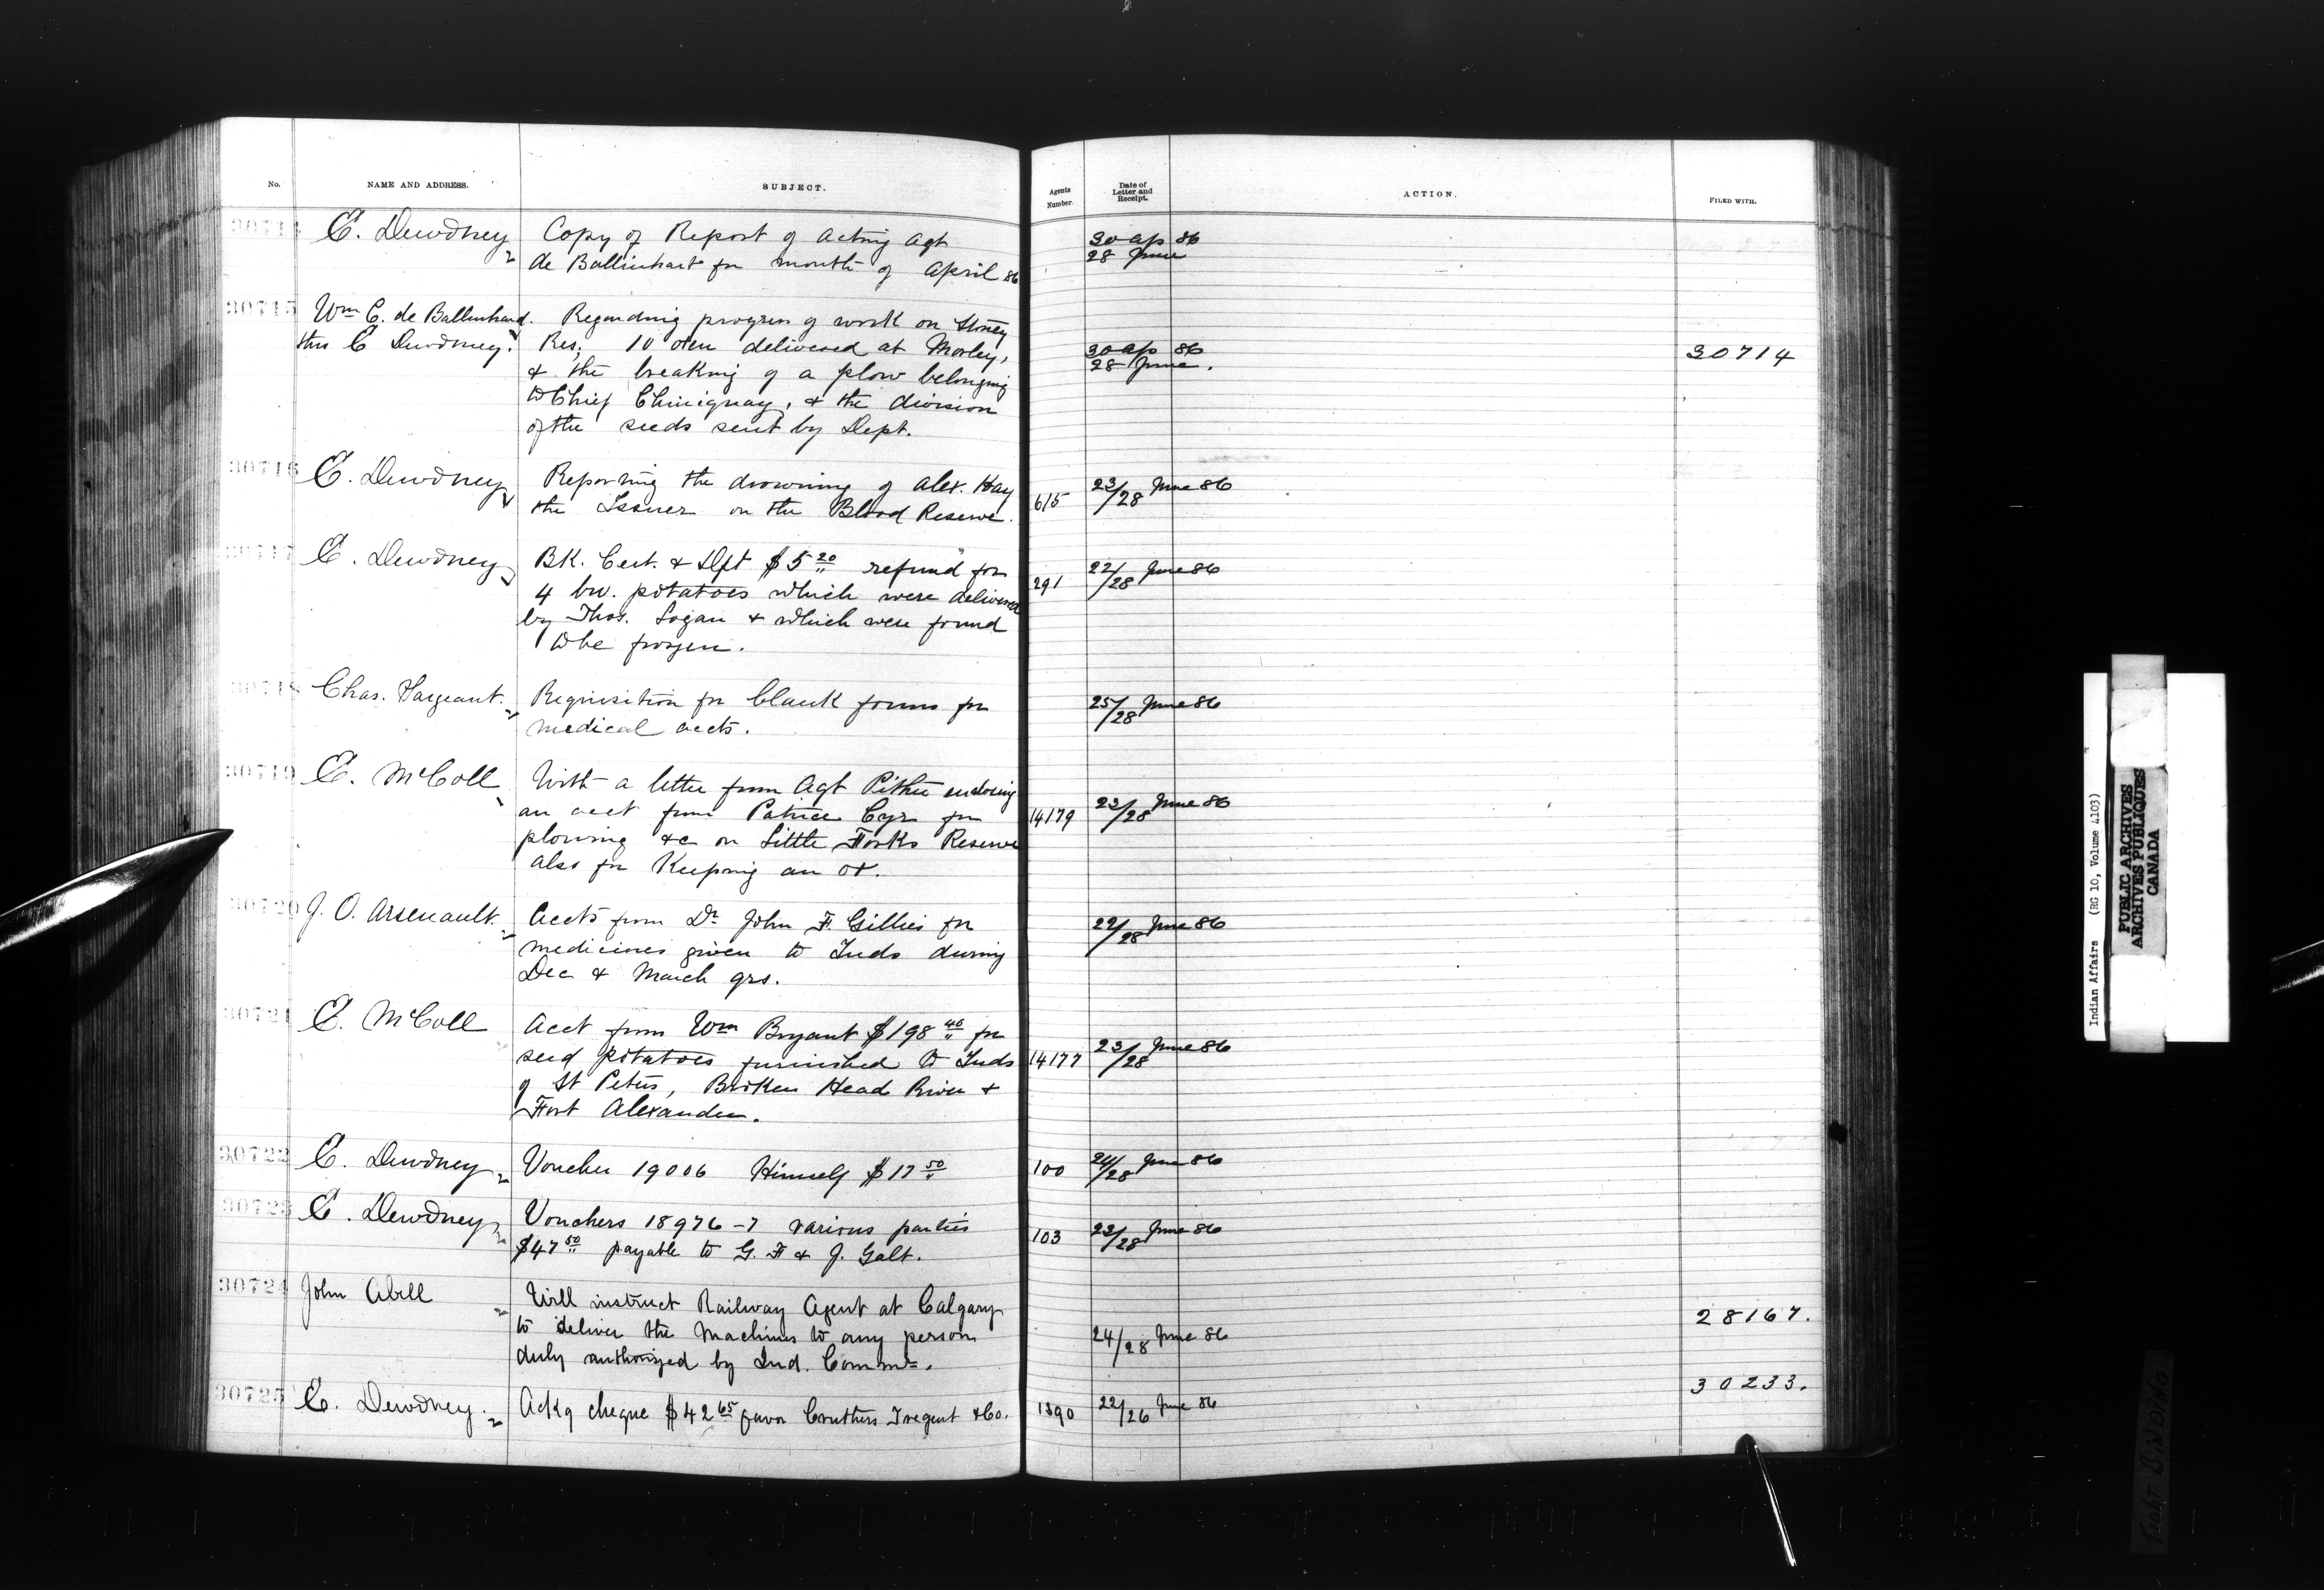 No. NAME AND ADDRESS. SUBJECT. Agents Number. Date of Letter and Receipt. ACTION. FILED WITH.
30714 E. Dewdney Copy of Report of Acting Agt 30 Ap 86
de Ballinhart for month of April 86 28 June
30715 Wm C. de Ballinhard. Regarding progress of work on Stoney
thro E Dewdney. Res; 10 oxen delivered at Morley, 30 Ap 86 30714
& the breaking of a plow belonging 28 June.
to Chief Chiniquay, & the division
of the seeds sent by Dept.
30716 E. Dewdney Reporting the drowning of Alex. Hay 23/28 June 86
the Issuer on the Blood Reserve. 615
30717 E. Dewdney BK. Cert. & Dft $5 20 refund for 22/28 June 86
4 bu. potatoes which were delivered 291
by Thos. Logan & which were found
to be frozen.
30718 Chas. Sargeant. Requisition for blank forms for 25/28 June 86
medical accts.
30719 E. McColl With a letter from Agt Pither enclosing
an acct from Patrice Cyr for 14179 23/28 June 86
plowing &c on Little Forks Reserve
also for Keeping an ox.
30720 J. O. Arsenault. Accts from Dr John F. Gillies for 22/28 June 86
medicines given to Inds during
Dec & March qrs.
30721 E. McColl Acct from Wm Bryant $198 40 for
seed potatoes furnished to Inds 14177 23/28 June 86
of St Peters, Broken Head River &
Fort Alexander.
30722 E. Dewdney Voucher 19006 Himself $17 50 100 24/28 June 86
30723 E. Dewdney Vouchers 18976-7 various parties
$47 50 payable to G. F & J. Galt. 103 23/28 June 86
30724 John Abell Will instruct Railway Agent at Calgary 28167.
to deliver the Machines to any person 24/28 June 86
duly authorized by Ind. Commr.
30725 E. Dewdney. Ackg cheque $42 65 favor Cruthers Tregent & Co. 1390 22/26 June 86 30233.
Indian Affairs (RG 10, Volume 4103)
PUBLIC ARCHIVES
ARCHIVES PUBLIQUES
CANADA
TIGHT BINDING